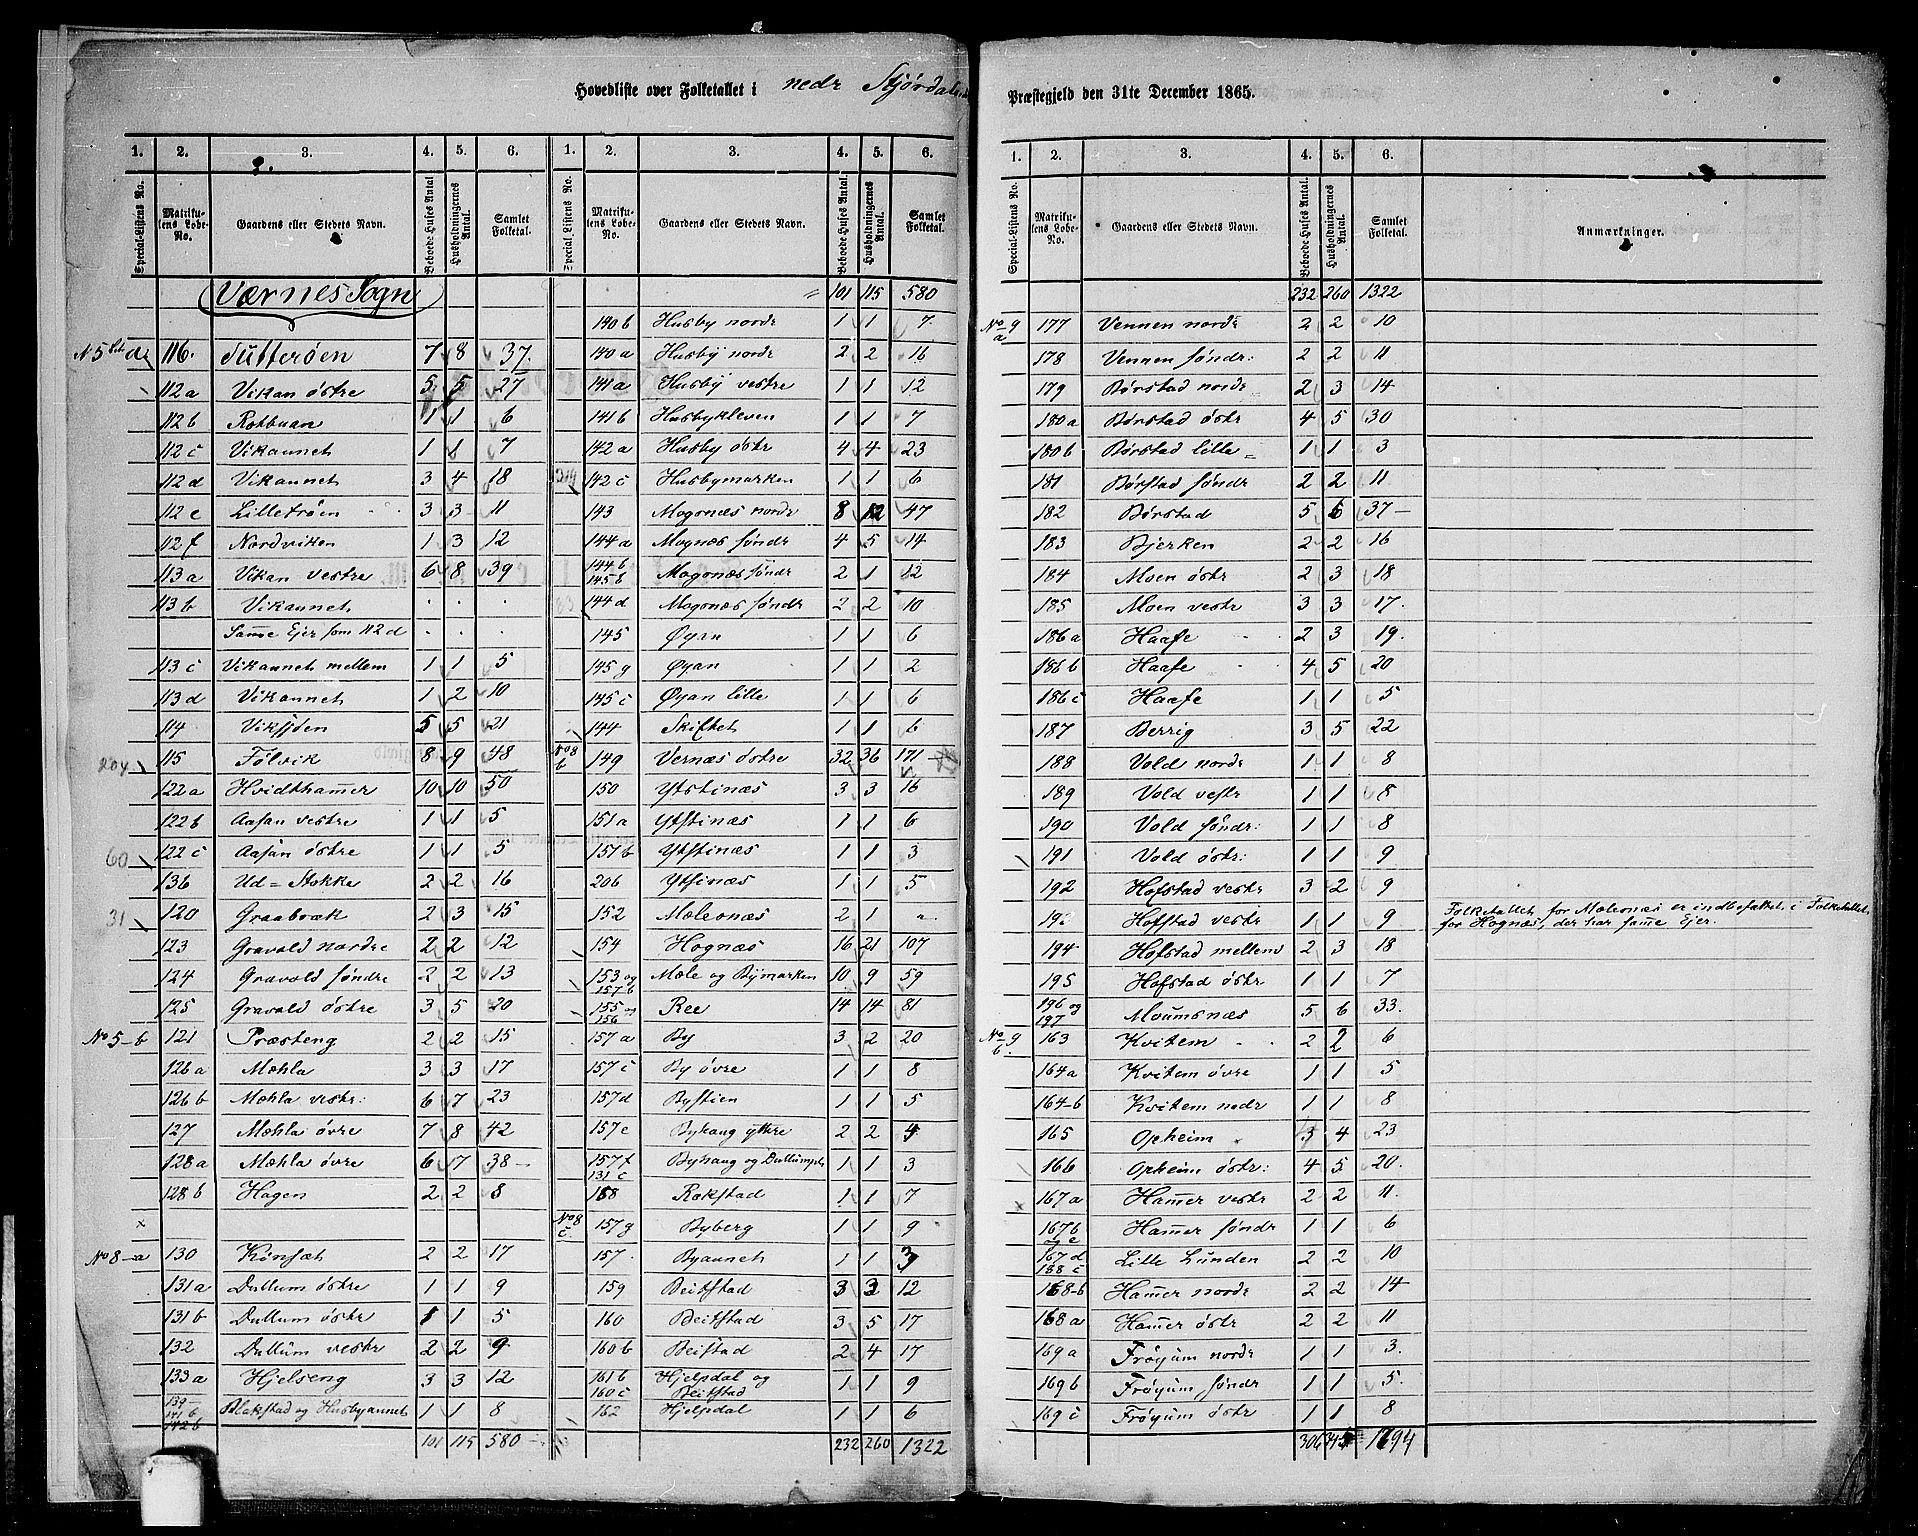 Hovedliste over Folketallet i nedr Stjørdal
Præstegjeld den 31te December 1865.
1. 2. 3. 4. 5. 6. 1. 2. 3. 4. 5. 6.
Special-Listens No. Matrikulens Løbe-No. Gaardens eller Stedets Navn. Beboede Huses Antal. Husholdningernes Antal. Samlet Folketal. Special-Listens No. Matrikulens Løbe-No. Gaardens eller Stedets Navn. Beboede Huses Antal. Husholdningernes Antal. Samlet Folketal.
Værnes Sogn
116. Sutterøen 7 8 37.
112a Vikan østre 5 5 27
112b Rotbuan 1 1 6
112c Vikannet 1 1 7
112d Vikannet 3 4 18
112e Lilletrøen 3 3 11
112f Nordviken 1 3 12
113a Vikan vestre 6 8 39
113b Vikannet . . .
Samme Ejer som 112d . . .
113c Vikannet mellem 1 1 5
113d Vikannet 1 2 10
114 Viksjøen 5 5 21
204 115 Følvik 8 9 48
122a Hvidthammer 10 10 50
122b Aasan vestre 1 1 5
60 122c Aasan østre 1 1 5
136 Ud=Stokke 2 2 16
31 120 Graabræk 2 3 15
123 Gravold nordre 2 2 12
124 Gravold søndre 2 2 13
125 Gravold østre 3 5 20
No 5-b 121 Præsteng 2 2 15
126a Mæhla 3 3 17
126b Mæhla vestr: 6 7 23
127 Mæhla øvre 7 8 42
128a Mæhla øvre 6 17 38
128b Hagen 2 2 8
x
No 8-a 130 Kønsæt 2 2 17
131a Dullum østre 1 1 9
131b Dullum østr 1 1 5
132 Dullum vestr 2 2 9
133a Hjelseng 3 3 12
139 141b 142b Blakstad og Husbyannet 1 1 8
101 115 580
" 101 115 580
140b Husby nordr 1 1 7
140a Husby nordr 2 2 16
141a Husby vestre 1 1 12
141b Husbykleven 1 1 7
142a Husby østr 4 4 23
142c Husbymarken 1 1 6
143 Mogonæs nordr 8 12 47
144a Mognæs søndr 4 5 14
144b 145b Mogonæs søndr 2 1 12
144d Mogonæs søndr 2 2 10
145 Øyan 1 1 6
145g Øyan 1 1 2
145c Øyan lille 1 1 6
144 Skiftet 1 1 6
No 8 b 149 Vernes østre 32 36 171
150 Ytstinæs 3 3 16
151a Ytstinæs 1 1 6
151b Ytstinæs 1 1 3
206 Ytsinæs 1 1 5
152 Mæleonæs 2 1
154 Hognæs 16 21 107
153 og 157b Mæle og Bymarken 10 9 59
155 og 156 Ree 14 14 81
157a By 3 2 20
157c By øvre 1 1 8
157d Bystien 1 1 5
157e Byhaug yttre 2 2 4
157f 131c Byhaug og Dullumpl 1 1 3
158 Rokstad 1 1 7
No 8 c 157g Byberg 1 1 9
157. Byannet 1 1 3
159 Beitstad 3 3 12
160 Beitstad 3 5 17
160b Beistad 2 4 17
161b 160c Hjelpdal og Beitstad 1 1 9
162 Hjelpdal 1 1 6
232 260 1322
1. 2. 3. 4. 5. 6.
Special-Listens No. Matrikulens Løbe-No. Gaardens eller Stedets Navn. Beboede Huses Antal. Husholdningernes Antal. Samlet Folketal. Anmærkninger.
232 260 1322
No 9 a 177 Vennen nordr 2 2 10
178 Vennen søndr: 2 2 11
179 Børstad nordr 2 3 14
180a Børstad østr 4 5 30
180b Børstad lille 1 1 3
181 Børstad søndr 2 2 11
182 Børstad 5 6 37
183 Bjerken 2 2 16
184 Moen østr 2 3 18
185 Moen vestr 3 3 17.
186a Haafe 2 3 19.
186b Haafe 4 5 20
186c Haafe 1 1 5
187 Berrig 3 5 22
188 Vold nordr 1 1 8
189 Vold vestr 1 1 8
190 Vold søndr: 1 1 8
191 Vold østr: 1 1 9
192 Hofstad vestr 3 2 9
193 Hofstad vestr 1 1 9 Folketallet for Mæleonæs er indbefattet i Folketallet
for Hognæs, der har samme Ejer.
194 Hofstad mellem 2 3 18
195 Hofstad østr 1 1 7
196 og 197 Moumsnæs 5 6 33.
No 9 b. 163 Kvitem 2 2 6
164a Kvitem øvre 1 1 5
164-b Kvitem nedr 1 1 8
165 Opheim 3 4 23
166 Opheim østr: 4 5 20.
167a Hammer vestr 2 2 11.
167b og e Hammer søndr 1 1 6
167d 188c Lille Lunden 2 2 10
168-b Hammer nordr 2 2 14
168a Hammer østr 2 2 11
169a Frøyum nordr 1 1 3.
169b Frøyum søndr 1 1 5.
169c Frøyum østr 1 1 8
306 345 1694